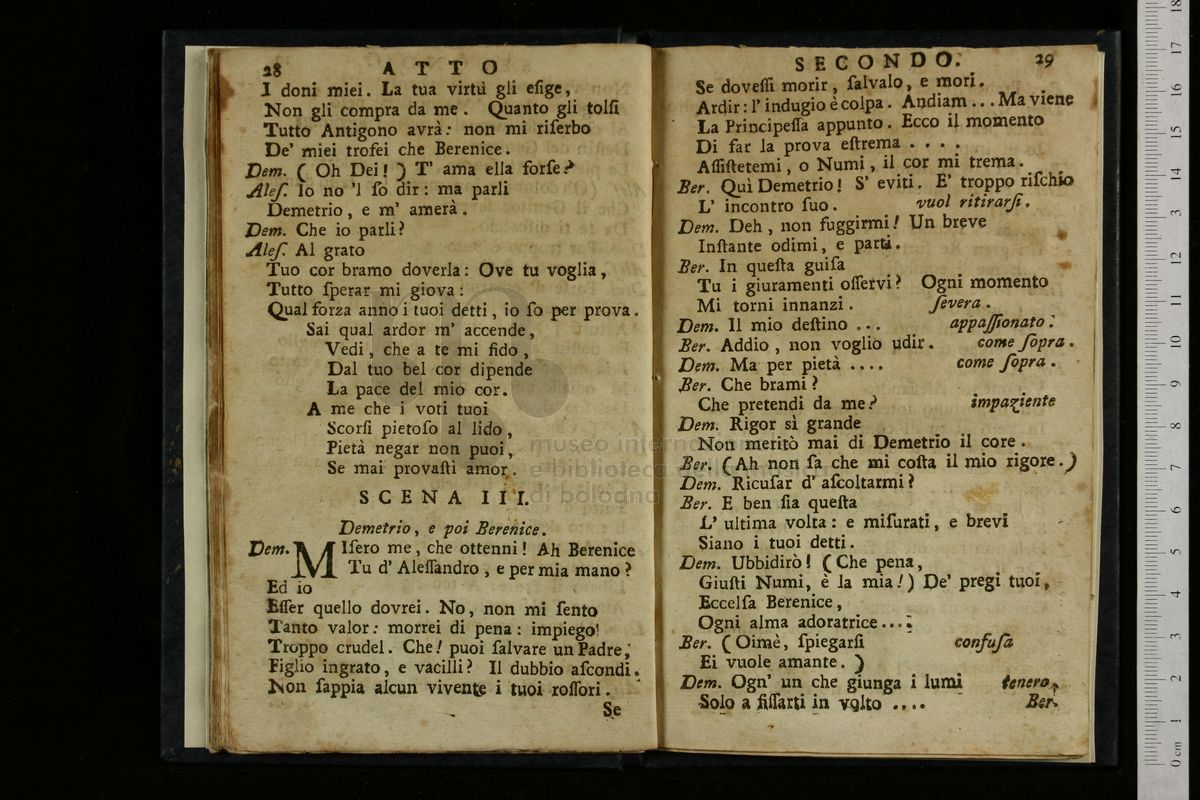 28 ATTO
I doni miei. La tua virtù gli eſige,
Non gli compra da me. Quanto gli tolſi
Tutto Antigono avrà: non mi riſerbo
De' miei trofei che Berenice.
Dem. ( Oh Dei! ) T' ama ella forſe?
Aleſ. Io no 'l ſo dir: ma parli
Demetrio, e m' amerà.
Dem. Che io parli?
Aleſ. Al grato
Tuo cor bramo doverla: Ove tu voglia,
Tutto ſperar mi giova:
Qual forza anno i tuoi detti, io ſo per prova.
Sai qual ardor m' accende,
Vedi, che a te mi fido,
Dal tuo bel cor dipende
La pace del mio cor.
A me che i voti tuoi
Scorſi pietoſo al lido,
Pietà negar non puoi,
Se mai provaſti amor.
SCENA III.
Demetrio, e poi Berenice.
Dem. MIſero me, che ottenni! Ah Berenice
Tu d' Aleſſandro, e per mia mano?
Ed io
Eſſer quello dovrei. No, non mi ſento
Tanto valor: morrei di pena: impiego
Troppo crudel. Che! puoi ſalvare un Padre,
Figlio ingrato, e vacilli? Il dubbio aſcondi.
Non ſappia alcun vivente i tuoi roſſori.
Se
SECONDO. 29
Se doveſſi morir, ſalvalo, e mori.
Ardir: l' indugio è colpa. Andiam ... Ma viene
La Principeſſa appunto. Ecco il momento
Di far la prova eſtrema ....
Aſſiſtetemi, o Numi, il cor mi trema.
Ber. Quì Demetrio! S' eviti. E' troppo riſchio
L' incontro ſuo. vuol ritirarſi.
Dem. Deh, non fuggirmi! Un breve
Inſtante odimi, e parti.
Ber. In queſta guiſa
Tu i giuramenti oſſervi? Ogni momento
Mi torni innanzi. ſevera.
Dem. Il mio deſtino ... appaſſionato.
Ber. Addio, non voglio udir. come ſopra.
Dem. Ma per pietà .... come ſopra.
Ber. Che brami?
Che pretendi da me? impaziente
Dem. Rigor sì grande
Non meritò mai di Demetrio il core.
Ber. ( Ah non ſa che mi coſta il mio rigore. )
Dem. Ricuſar d' aſcoltarmi?
Ber. E ben ſia queſta
L' ultima volta: e miſurati, e brevi
Siano i tuoi detti.
Dem. Ubbidirò! ( Che pena,
Giuſti Numi, è la mia! ) De' pregi tuoi,
Eccelſa Berenice,
Ogni alma adoratrice....
Ber. ( Oimè, ſpiegarſi confuſa
Ei vuole amante. )
Dem. Ogn' un che giunga i lumi tenero.
Solo a fiſſarti in volto ....
Ber.
museo interna
e biblioteca della musica
di bologna
0 cm 1 2 3 4 5 6 7 8 9 10 11 12 13 14 15 16 17 18